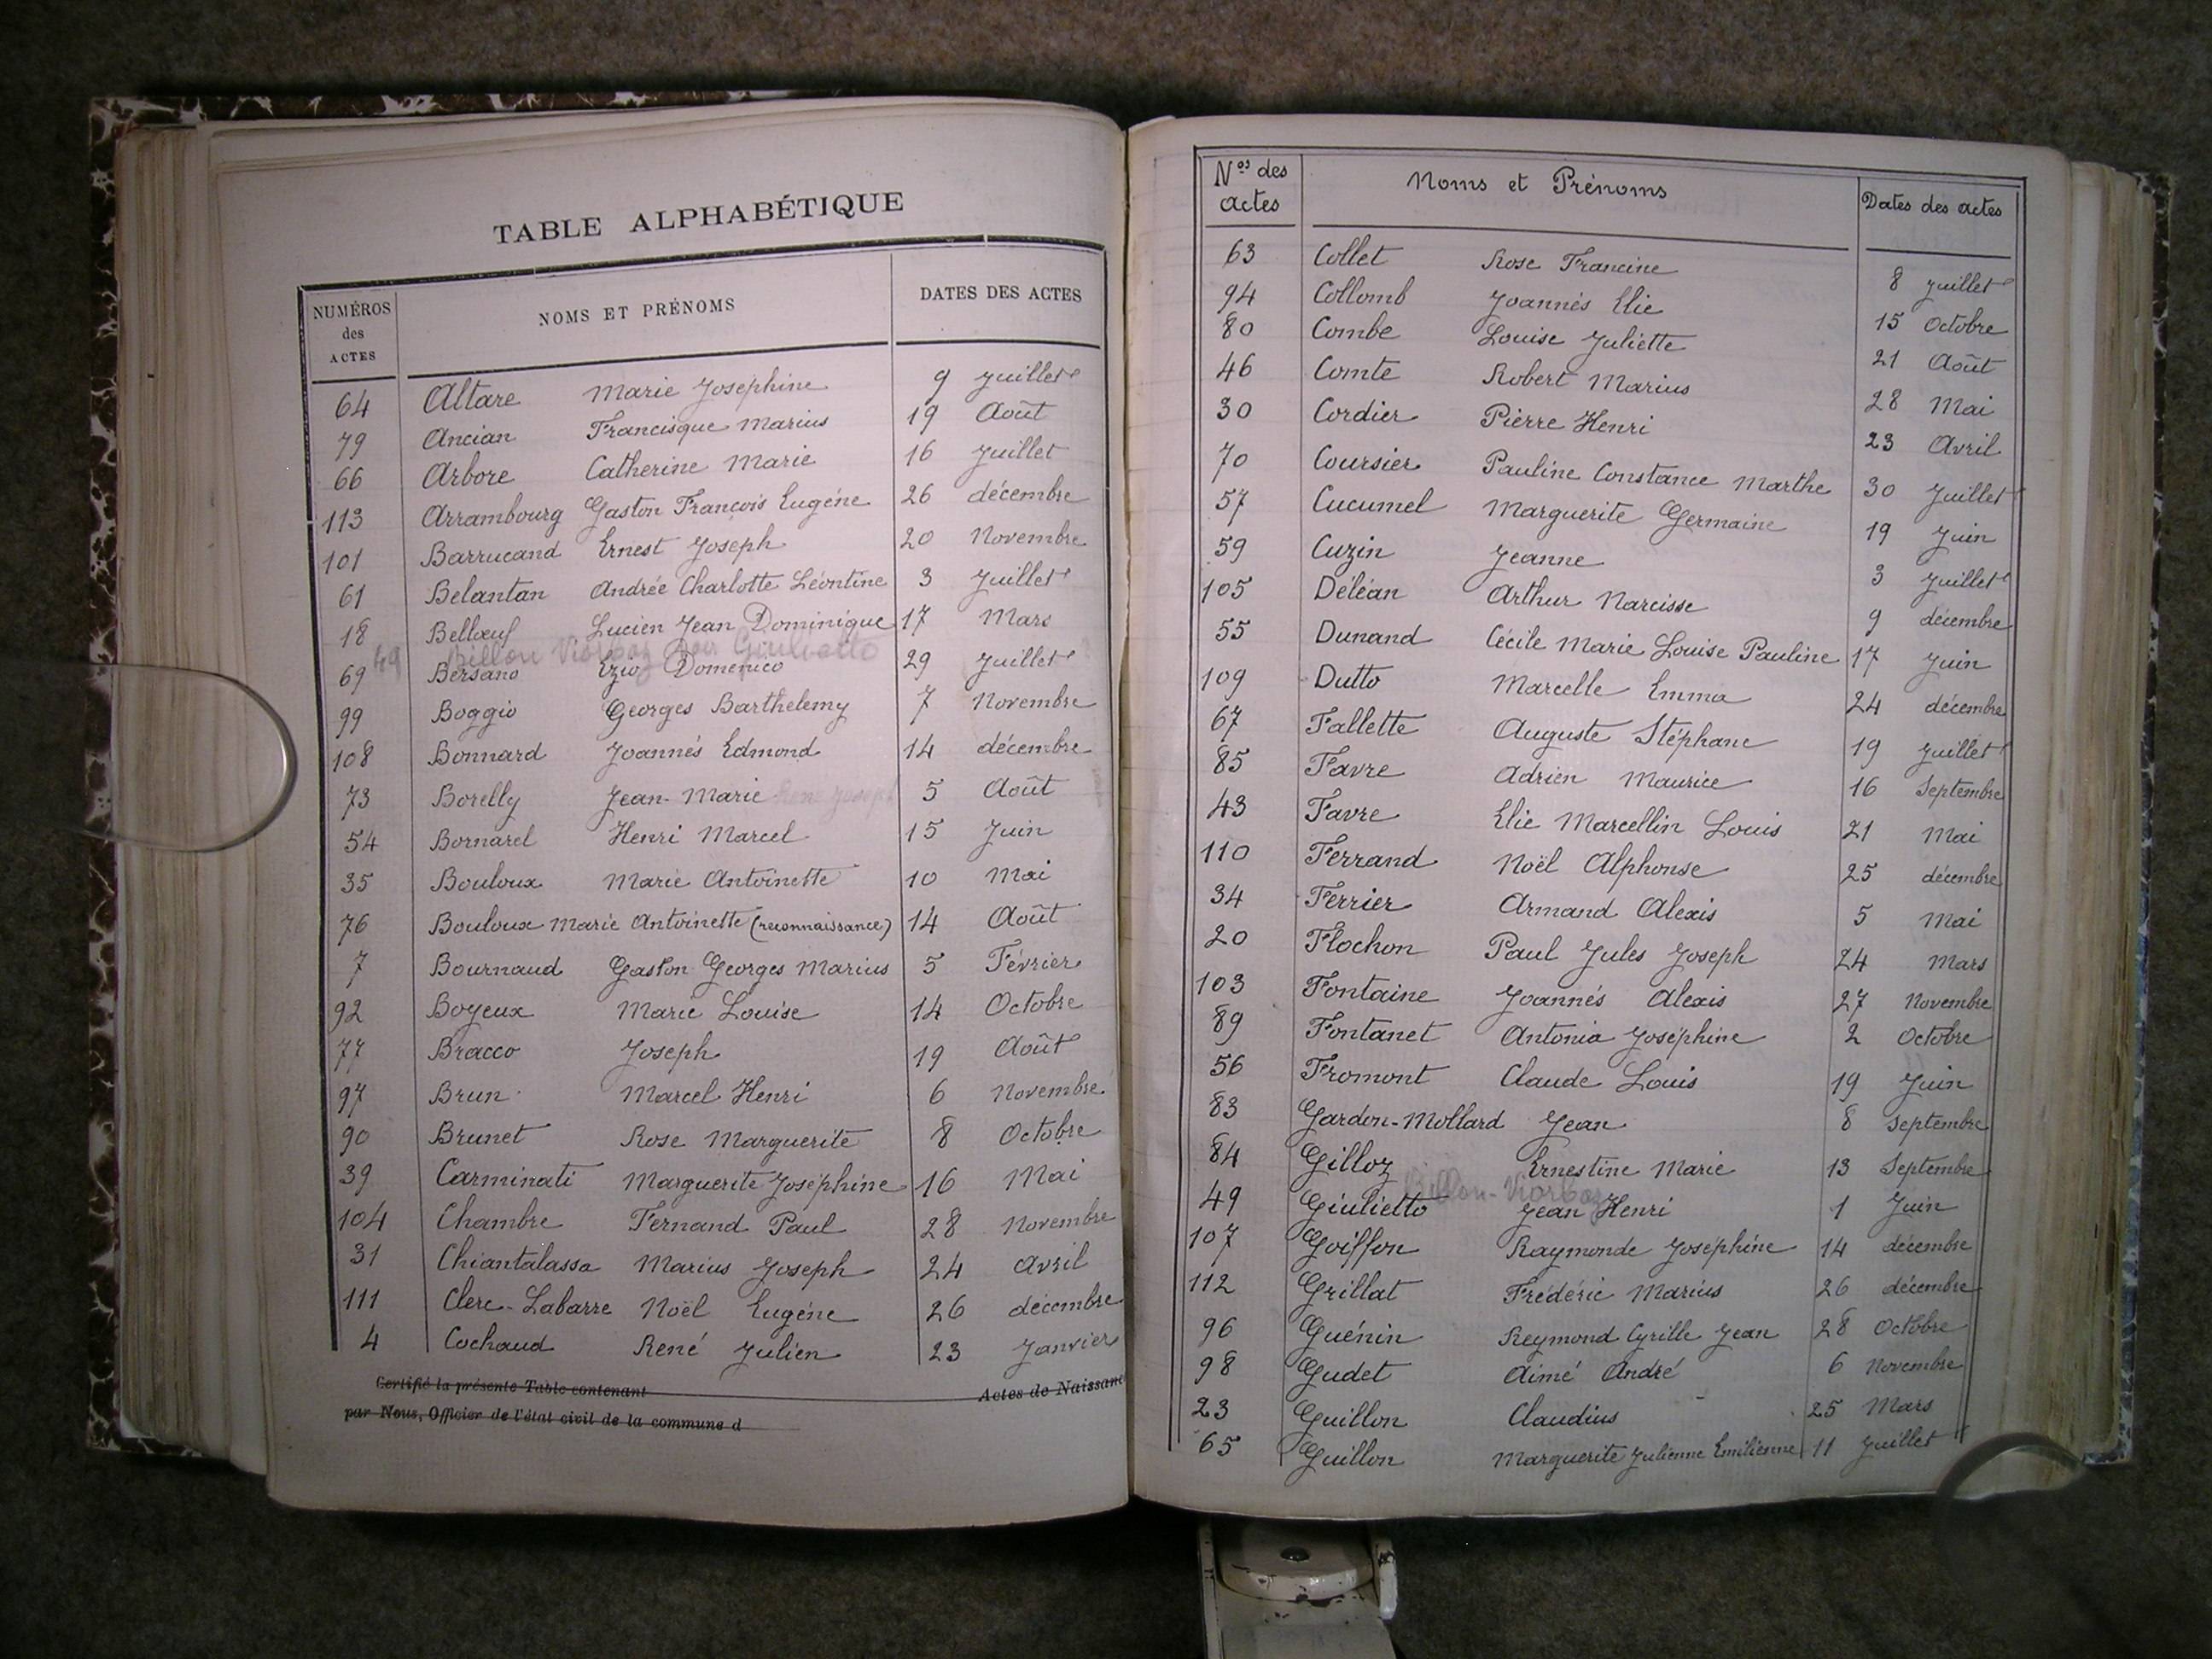 TABLE ALPHABÉTIQUE
NUMÉROS des ACTES NOMS ET PRÉNOMS DATES DES ACTES
64 Altare Marie Joséphine 9 Juillet
79 Ancian Francisque Marius 19 Août
66 Arbore Catherine Marie 16 Juillet
113 Arrambourg Gaston François Eugène 26 décembre
101 Barrucand Ernest Joseph 20 Novembre
61 Belantan Andrée Charlotte Léontine 3 Juillet
18 Bellœuf Lucien Jean Dominique 17 Mars
49 Billon Viorbaz voir Giulietto
69 Bersano Ezio Domenico 29 Juillet
99 Boggio Georges Barthelemy 7 Novembre
108 Bonnard Joannés Edmond 14 décembre
73 Borelly Jean-Marie René Joseph 5 Août
54 Bornarel Henri Marcel 15 Juin
35 Bouloux Marie Antoinette 10 Mai
76 Bouloux Marie Antoinette (reconnaissance) 14 Août
7 Bournaud Gaston Georges Marius 5 Février
92 Boyeux Marie Louise 14 Octobre
77 Bracco Joseph 19 Août
97 Brun Marcel Henri 6 Novembre
90 Brunet Rose Marguerite 8 Octobre
39 Carminati Marguerite Joséphine 16 Mai
104 Chambre Fernand Paul 28 Novembre
31 Chiantalassa Marius Joseph 24 Avril
111 Clerc-Labarre Noël Eugène 26 décembre
4 Cochaud René Julien 23 Janvier
Certifié la présente Table contenant Actes de Naissanc
par Nous, Officier de l'état civil de la commune d
Nos des actes Noms et Prénoms Dates des actes
63 Collet Rose Francine 8 Juillet
94 Collomb Joannés Elie 15 Octobre
80 Combe Louise Juliette 21 Août
46 Comte Robert Marius 28 Mai
30 Cordier Pierre Henri 23 Avril
70 Coursier Pauline Constance Marthe 30 Juillet
57 Cucumel Marguerite Germaine 19 Juin
59 Cuzin Jeanne 3 Juillet
105 Déléan Arthur Narcisse 9 décembre
55 Dunand Cécile Marie Louise Pauline 17 Juin
109 Dutto Marcelle Emma 24 décembre
67 Fallette Auguste Stéphane 19 Juillet
85 Favre Adrien Maurice 16 Septembre
43 Favre Elie Marcellin Louis 21 Mai
110 Ferrand Noël Alphonse 25 décembre
34 Ferrier Armand Alexis 5 Mai
20 Flochon Paul Jules Joseph 24 Mars
103 Fontaine Joannés Alexis 27 Novembre
89 Fontanet Antonia Joséphine 2 Octobre
56 Fromont Claude Louis 19 Juin
83 Gardon-Mollard Jean 8 Septembre
84 Gilloz Ernestine Marie 13 Septembre
Billon-Viorbaz
49 Giulietto Jean Henri 1 Juin
107 Goiffon Raymonde Joséphine 14 décembre
112 Grillat Frédéric Marius 26 décembre
96 Guénin Reymond Cyrille Jean 28 Octobre
98 Gudet Aimé André 6 Novembre
23 Guillon Claudius 25 Mars
65 Guillon Marguerite Julienne Emilienne 11 Juillet